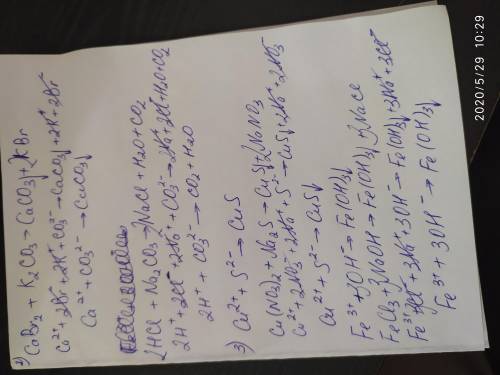 1) CaBr2 + K2CO3 → CaCO3↓ + 2KBr
Ca2+ + 2Br- + 2K+ + CO3 2- → CaCO3↓ + 2K+ + 2Br-
Ca2+ + CO3 2- → CaCO3↓
2HCl + Na2CO3 → 2NaCl + H2O + CO2
2H+ + 2Cl- + 2Na+ + CO3 2- → 2Na+ + 2Cl- + H2O + CO2
2H+ + CO3 2- → CO2 + H2O
3) Cu2+ + S2- → CuS
Cu(NO3)2 + Na2S → CuS↓ + 2NaNO3
Cu2+ + 2NO3- + 2Na+ + S2- → CuS↓ + 2Na+ + 2NO3-
Cu2+ + S2- → CuS↓
Fe3+ + 3OH- → Fe(OH)3↓
FeCl3 + 3NaOH → Fe(OH)3↓ + 3NaCl
Fe3+ + 3Cl- + 3Na+ + 3OH- → Fe(OH)3↓ + 3Na+ + 3Cl-
Fe3+ + 3OH- → Fe(OH)3↓
2020/5/29 10:29